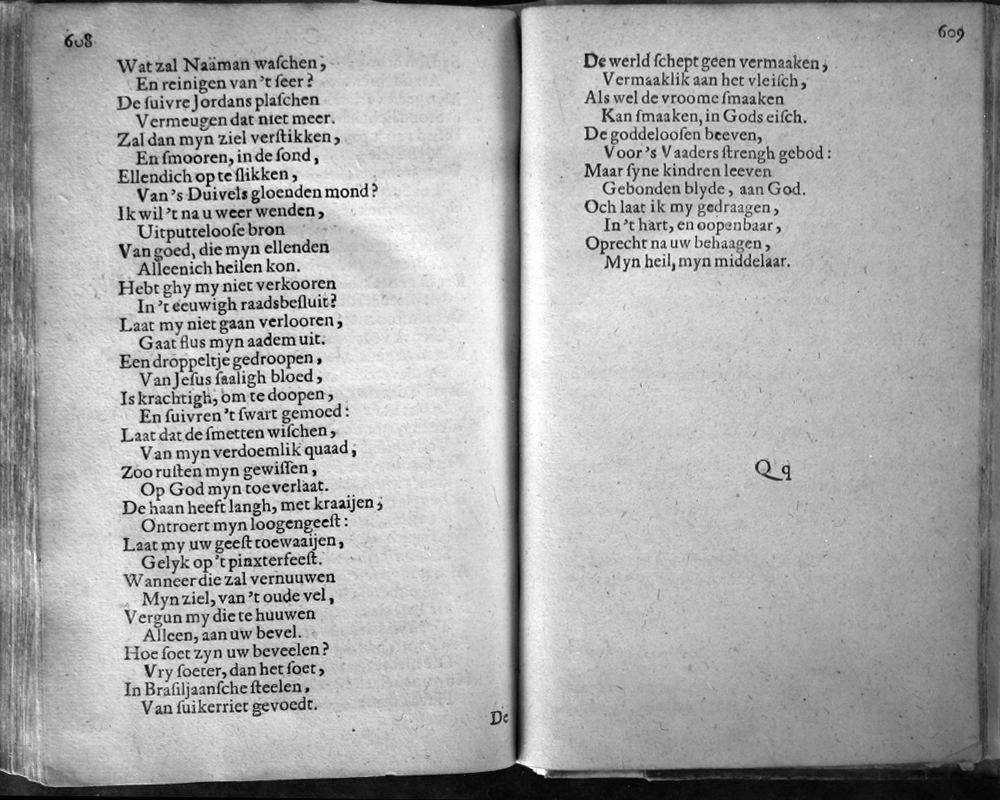 608
Wat zal Naäman waſchen,
En reinigen van 't ſeer?
De ſuivre Jordans plaſchen
Vermeugen dat niet meer.
Zal dan myn ziel verſtikken,
En ſmooren, in de ſond,
Ellendich op te ſlikken,
Van 's Duivels gloenden mond?
Ik wil 't na u weer wenden,
Uitputtelooſe bron
Van goed, die myn ellenden
Alleenich heilen kon.
Hebt ghy my niet verkooren
In 't eeuwigh raadsbeſluit?
Laat my niet gaan verlooren,
Gaat flus myn aadem uit.
Een droppeltje gedroopen,
Van Jeſus ſaaligh bloed,
Is krachtigh, om te doopen,
En ſuivren 't ſwart gemoed:
Laat dat de ſmetten wiſchen,
Van myn verdoemlik quaad,
Zoo ruſten myn gewiſſen,
Op God myn toeverlaat.
De haan heeft langh, met kraaijen,
Ontroert myn loogengeeſt:
Laat my uw geeſt toewaaijen,
Gelyk op 't pinxterfeeſt.
Wanneer die zal vernuuwen
Myn ziel, van 't oude vel,
Vergun my die te huuwen
Alleen, aan uw bevel.
Hoe ſoet zyn uw beveelen?
Vry ſoeter, dan het ſoet,
In Braſiljaanſche ſteelen,
Van ſuikerriet gevoedt.
De
609
De werld ſchept geen vermaaken,
Vermaaklik aan het vleiſch,
Als wel de vroome ſmaaken
Kan ſmaaken, in Gods eiſch.
De goddelooſen beeven,
Voor 's Vaaders ſtrengh gebod:
Maar ſyne kindren leeven
Gebonden blyde, aan God.
Och laat ik my gedraagen,
In 't hart, en oopenbaar,
Oprecht na uw behaagen,
Myn heil, myn middelaar.
Qq